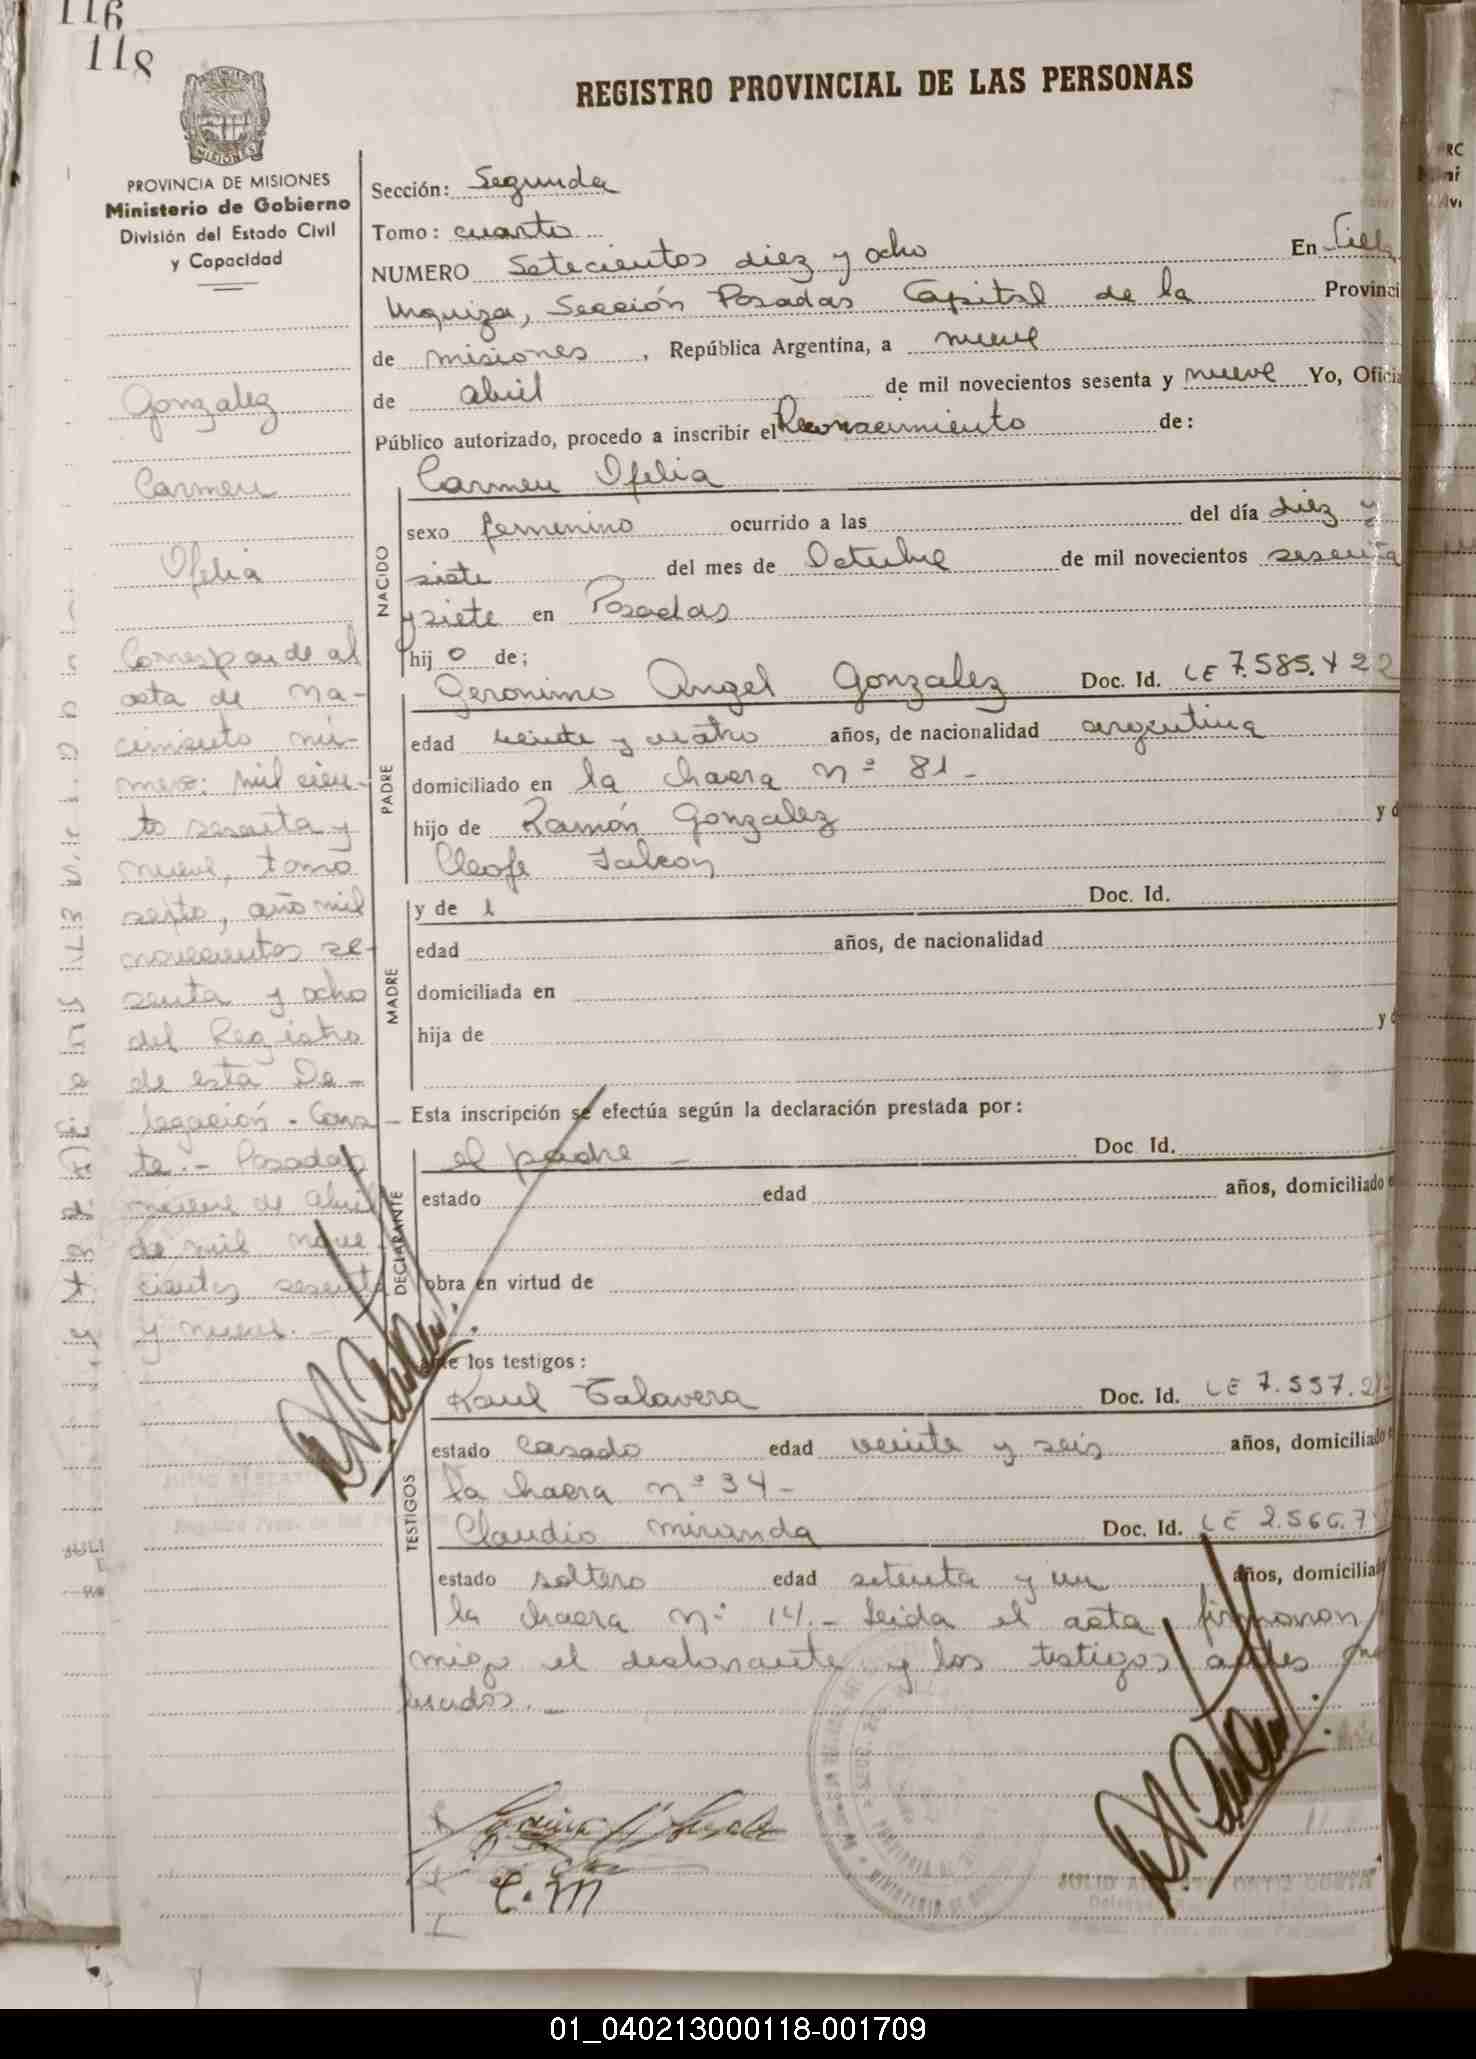 116
118
REGISTRO PROVINCIAL DE LAS PERSONAS
MISIONES
PROVINCIA DE MISIONES
Ministerio de Gobierno
División del Estado Civil
y Capacidad
Gonzalez
Carmen
Ofelia
Corresponde al
acta de Na-
cimiento nú-
mero: mil cien-
to sesenta y
nueve, tomo
sexto, año mil
novecientos se-
senta y ocho
del Registro
de esta De-
legación.- Cons-
te.- Posadas
nueve de abril
de mil nove
cientos sesenta
y nueve.-
Sección: Segunda
Tomo: cuarto
NUMERO Setecientos diez y ocho En Villa
Urquiza, Sección Posadas Capital de la Provinci
de misiones, República Argentina, a nueve
de abril de mil novecientos sesenta y nueve Yo, Oficia
Público autorizado, procedo a inscribir el Reconocimiento de:
NACIDO
Carmen Ofelia
sexo femenino ocurrido a las del día diez y
siete del mes de Octubre de mil novecientos sesenta
y siete en Posadas
hij o de:
PADRE
Geronimo Angel Gonzalez Doc. Id. LE 7.585.422
edad veinte y cuatro años, de nacionalidad argentina
domiciliado en la chacra nº 81-
hijo de Ramón Gonzalez y d
Cleofe
MADRE
y de Doc. Id.
edad años, de nacionalidad
domiciliada en
hija de y d
Esta inscripción se efectúa según la declaración prestada por:
DECLARANTE
el padre - Doc. Id.
estado edad años, domiciliado e
obra en virtud de
ante los testigos:
TESTIGOS
Raul Talavera Doc. Id. LE 7.557.2
estado casado edad veinte y seis años, domiciliado e
la chacra nº 34-
Claudio miranda Doc. Id. LE 2.566.7
estado soltero edad setenta y un años, domicilia
la chacra nº 14.- Leida el acta, firmaron
migo el declarante y los testigos antes
C.M
JULIO
01_040213000118-001709